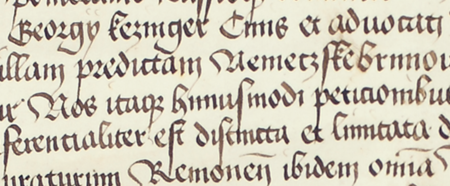 Georgy kezinger Ciuis et aduocati
illam predictam Nemetzskebrunow
Nos itaqz huiusmodi peticionibus
ferentialiter est distincta et limitata d
uraturum Remoneñ ibidem om̄ia